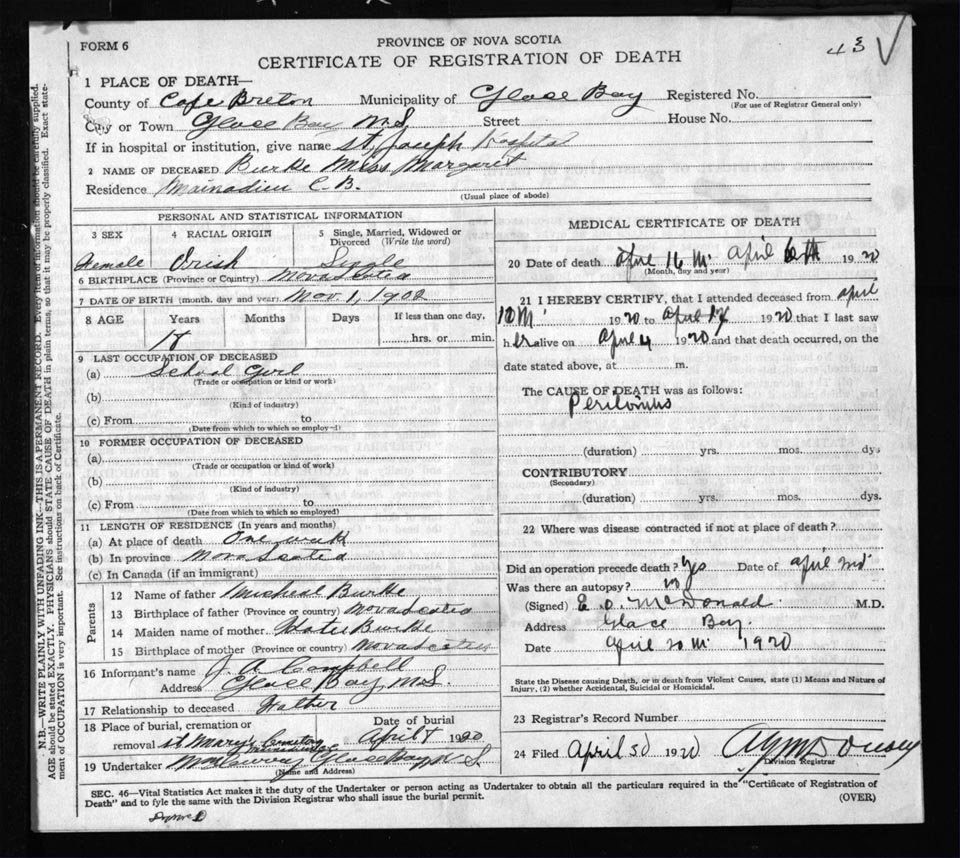 FORM 6
PROVINCE OF NOVA SCOTIA
CERTIFICATE OF REGISTRATION OF DEATH
1 PLACE OF DEATH—
County of Cape Breton Municipality of Glace Bay Registered No.
(For use of Registrar General only)
City or Town Glace Bay N.S. Street House No.
If in hospital or institution, give name St. Joseph Hospital
2 NAME OF DECEASED Burke Miss Margaret
Residence Mainadieu C.B.
(Usual place of abode)
PERSONAL AND STATISTICAL INFORMATION
3 SEX 4 RACIAL ORIGIN 5 Single, Married, Widowed or Divorced (Write the word)
Female Irish Single
6 BIRTHPLACE (Province or Country) Nova Scotia
7 DATE OF BIRTH (month, day and year) Nov. 1, 1902
8 AGE Years Months Days If less than one day,
hrs. or min.
9 LAST OCCUPATION OF DECEASED
(a) School Girl
(Trade or occupation or kind of work)
(b)
(Kind of industry)
(c) From to
(Date from which to which so employed)
10 FORMER OCCUPATION OF DECEASED
(a)
(Trade or occupation or kind of work)
(b)
(Kind of industry)
(c) From to
(Date from which to which so employed)
11 LENGTH OF RESIDENCE (In years and months)
(a) At place of death One week
(b) In province Nova Scotia
(c) In Canada (if an immigrant)
Parents
12 Name of father Micheal Burke
13 Birthplace of father (Province or country) Nova Scotia
14 Maiden name of mother Katie Burke
15 Birthplace of mother (Province or country) Nova Scotia
16 Informant's name J. A. Campbell
Address Glace Bay, N.S.
17 Relationship to deceased Father
18 Place of burial, cremation or Date of burial
removal St Mary's Cemetery April 1920
19 Undertaker Glace Bay N.S.
(Name and Address)
MEDICAL CERTIFICATE OF DEATH
20 Date of death April 6th 1920
(Month, day and year)
21 I HEREBY CERTIFY, that I attended deceased from April
1920 to April 1920 that I last saw
her alive on April 4 1920 and that death occurred, on the
date stated above, at m.
The CAUSE OF DEATH was as follows:
(duration) yrs. mos. dys.
CONTRIBUTORY
(Secondary)
(duration) yrs. mos. dys.
22 Where was disease contracted if not at place of death?
Did an operation precede death? Yes Date of April 2nd
Was there an autopsy? no
(Signed) E. O. McDonald M.D.
Address Glace Bay.
Date April 1920
State the Disease causing Death, or in death from Violent Causes, state (1) Means and Nature of
Injury, (2) whether Accidental, Suicidal or Homicidal.
23 Registrar's Record Number
24 Filed April 30 1920
Division Registrar
SEC. 46—Vital Statistics Act makes it the duty of the Undertaker or person acting as Undertaker to obtain all the particulars required in the "Certificate of Registration of
Death" and to fyle the same with the Division Registrar who shall issue the burial permit.
(OVER)
N.B.—WRITE PLAINLY WITH UNFADING INK—THIS IS A PERMANENT RECORD. Every item of information should be carefully supplied.
AGE should be stated EXACTLY. PHYSICIANS should STATE CAUSE OF DEATH in plain terms, so that it may be properly classified. Exact state-
ment of OCCUPATION is very important. See instructions on back of Certificate.